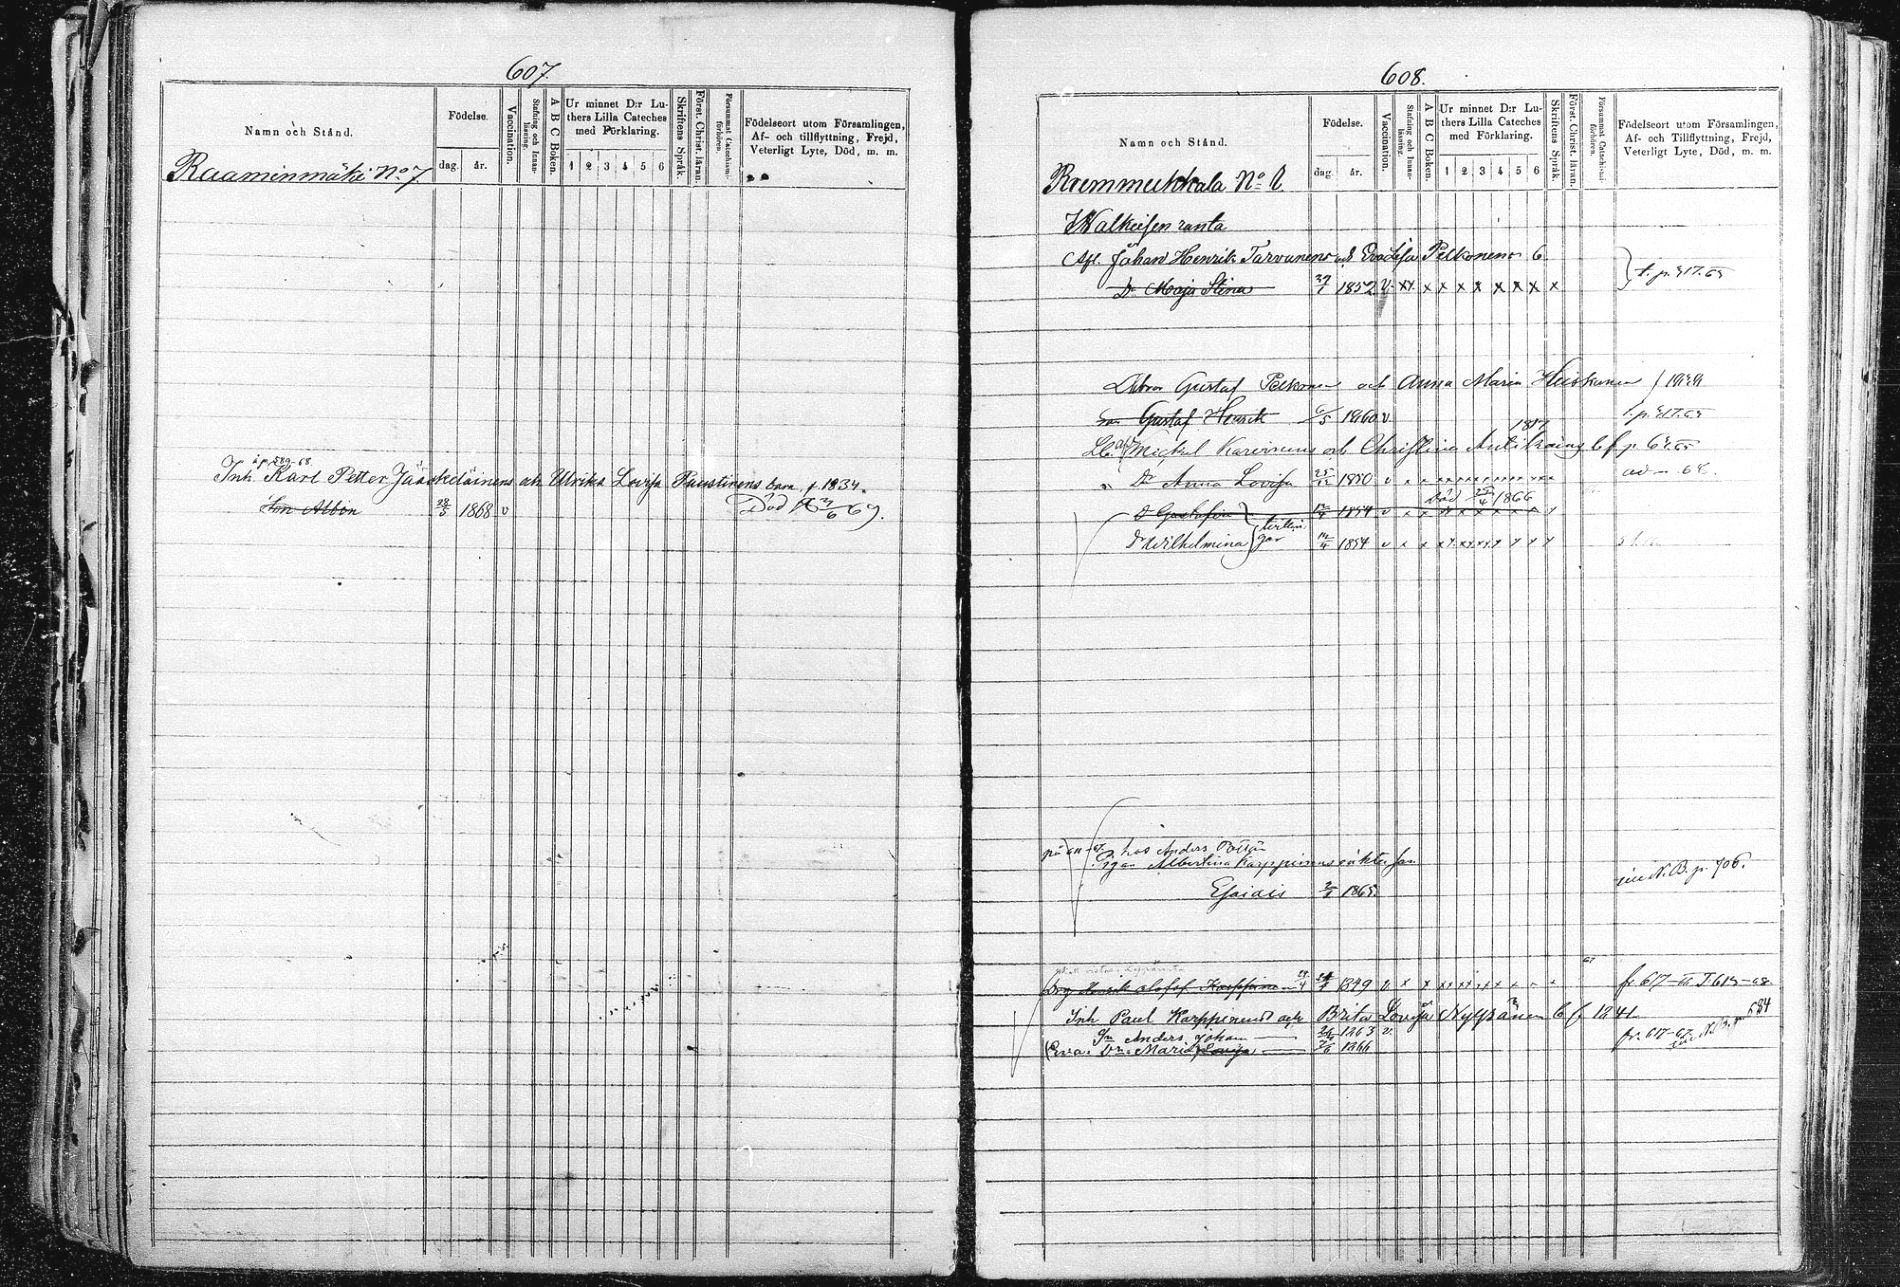 607.
Namn och Stånd.
Födelse.
dag. år.
Vaccination.
Stafning och Innanläsning.
A B C Boken.
Ur minnet D:r Luthers Lilla Cateches med Förklaring.
1 2 3 4 5 6
Skriftens Språk.
Först. Christ. läran.
Försummat Catechismiförhören.
Födelseort utom Församlingen, Af- och tillflyttning, Frejd, Veterligt Lyte, Död, m. m.
Raaminmäki No 7
i p. 589-68
Inh. Karl Petter Jääskeläinens och Ulrika Lovisa Paustinens barn f. 1834.
Son Albin 28/5 1868 v Död 6 69.
608.
Namn och Stånd.
Födelse.
dag. år.
Vaccination.
Stafning och Innanläsning.
A B C Boken.
Ur minnet D:r Luthers Lilla Cateches med Förklaring.
1 2 3 4 5 6
Skriftens Språk.
Först. Christ. läran.
Försummat Catechismiförhören.
Födelseort utom Församlingen, Af- och Tillflyttning, Frejd, Veterligt Lyte, Död, m. m.
Rummukkala No 1
Walkeisen ranta
Johan Henrik Tarvainens och Eva Lisa Pelkonens b.
Dr Maja Stina 1852 v. xx x x x x x x x x t. p. 317. 65
Gustaf Pelkonen och Anna Maria Huiskonen
Son Gustaf Henrik 6/5 1860 v t. p. 317. 65
1817
Mickel Karvinens och Christina b f p 65
Dr Anna Lovisa 25/12 1850 v x x adm. 68.
Död 25/4 1866
D Gustafva 14/4 1854 v x x x x x x x x
tvillingar
Dr Wilhelmina 14/4 1854 v x x
hos Anders
Pigan Albertina Karppinens oäkta son
Esaias 1865. N. B. p. 706.
Henrik Olof Karppinen 1849 v x x x fr 617-
Inh Paul Karppinens och Brita Lovisa b f 1241
684
Sn Anders Johan 1863 v. fr. 617-67
Eva Dr Maria Lovisa 1866